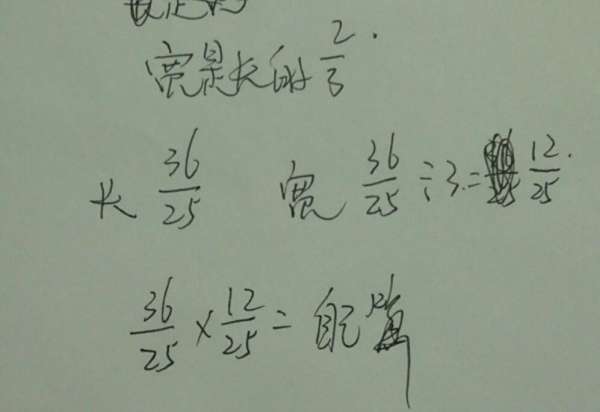 宽是长的2/3.
长 36/25 宽 36/25÷3=12/25.
36/25×12/25=自己算